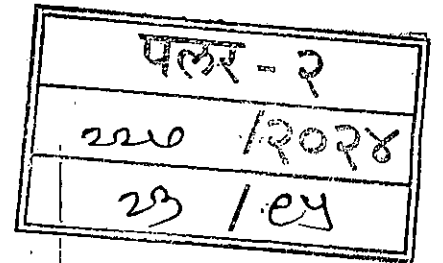 पलर - २
२२७ /२०२४
२३ / ९५